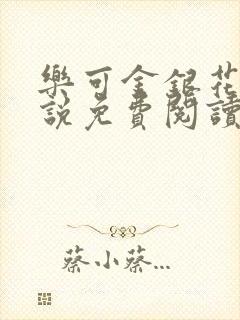 樂可金銀花
說免費閱讀
蔡小蔡...